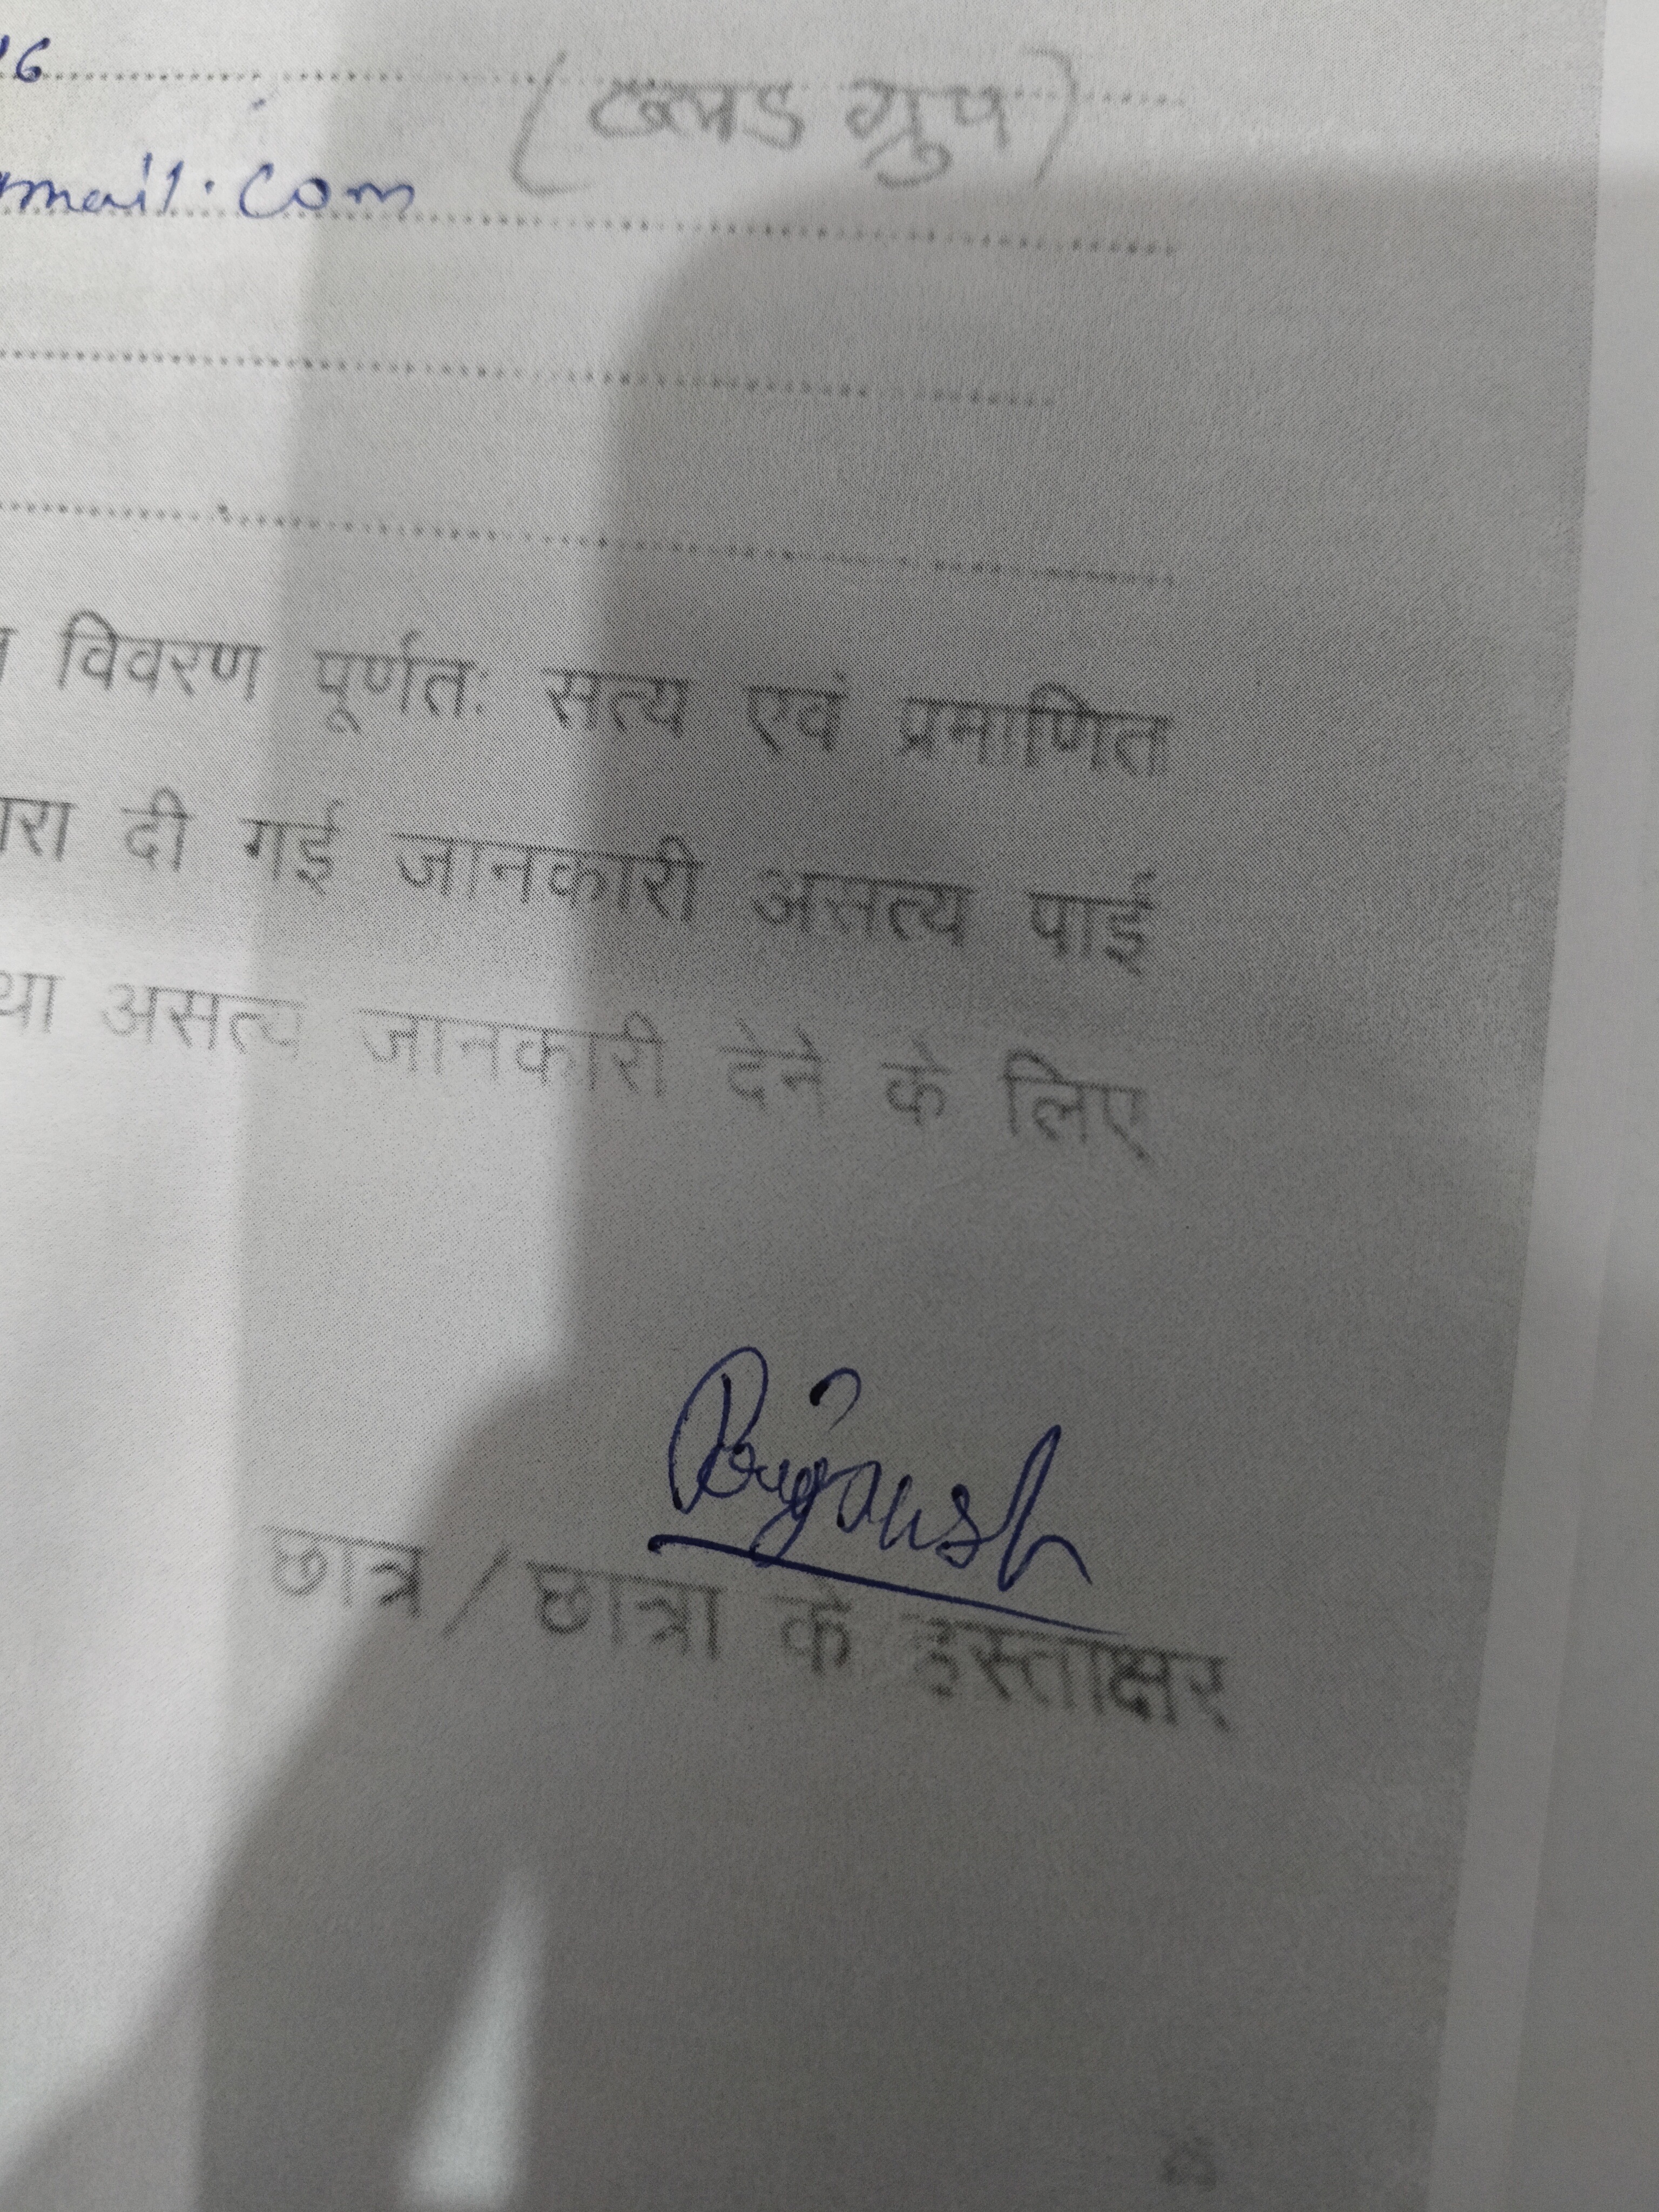 16
(ब्लड ग्रुप)
gmail.com
विवरण पूर्णतः सत्य एवं प्रमाणित
दी गई जानकारी असत्य पाई
असत्य जानकारी देने के लिए
छात्र / छात्रा के हस्ताक्षर